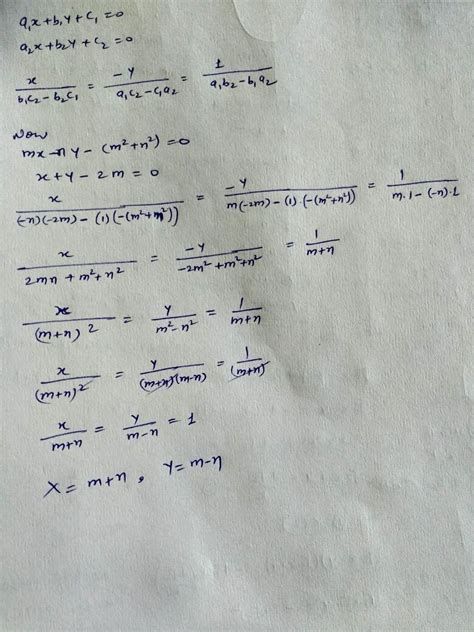 a₁x+b₁y+c₁=0
a₂x+b₂y+c₂=0
x/(b₁c₂-b₂c₁) = -y/(a₁c₂-c₁a₂) = 1/(a₁b₂-b₁a₂)
Now
mx-ny-(m²+n²)=0
x+y-2m=0
x/((-n)(-2m)-(1)(-(m²+n²))) = -y/(m(-2m)-(1).(-(m²+n²))) = 1/(m.1-(-n).1)
x/(2mn+m²+n²) = -y/(-2m²+m²+n²) = 1/(m+n)
x/(m+n)² = y/(m²-n²) = 1/(m+n)
x/(m+n)² = y/((m+n)(m-n)) = 1/(m+n)
x/(m+n) = y/(m-n) = 1
X= m+n, Y=m-n